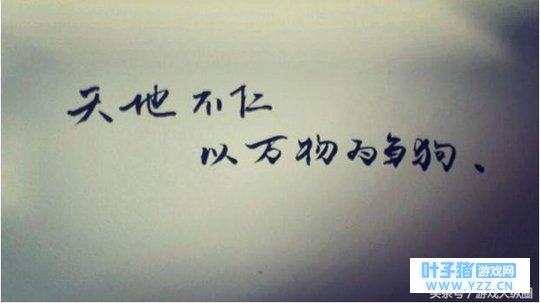 天地不仁
以万物为刍狗、
叶子猪游戏网
WWW.YZZ.CN
头条号/游戏大纵圈